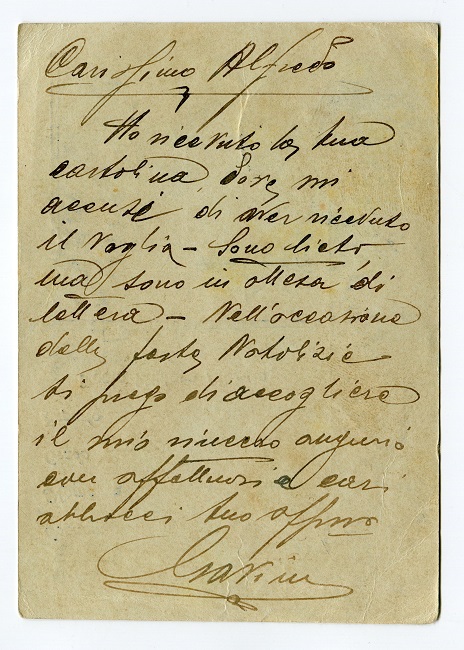 Carissimo Alfredo
Ho ricevuto la tua
cartolina, dove mi
accusi di aver ricevuto
il Vaglia – Sono lieto,
ma sono in attesa di
lettera – Nell'occasione
delle feste Natalizie
ti prego di accogliere
il mio sincero augurio
con affettuosi e cari
abbracci tuo affmo